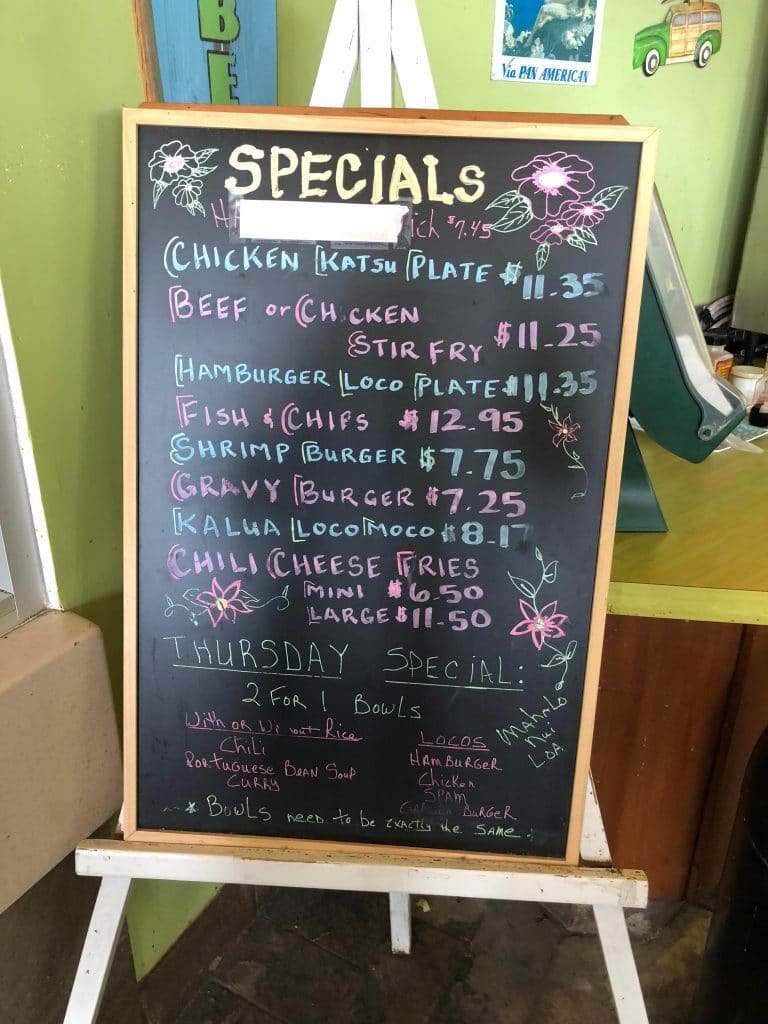 BE
Via PAN AMERICAN
SPECIALS
$7.45
CHICKEN KATSU PLATE $11.35
BEEF or CHICKEN
STIR FRY $11.25
HAMBURGER LOCO PLATE $11.35
FISH & CHIPS $12.95
SHRIMP BURGER $7.75
GRAVY BURGER $7.25
KALUA LOCO MOCO $8.17
CHILI CHEESE FRIES
MINI $6.50
LARGE $11.50
THURSDAY SPECIAL:
2 FOR 1 BOWLS
With OR Wi out Rice
CHiLi
PORTUGUESE BEAN SOUP
CURRY
LOCOS
HAMBURGER
Chicken
SPAM
BURGER
MAHALO
nui
LOA
* BOWLS need to be EXACTLY the SAME.